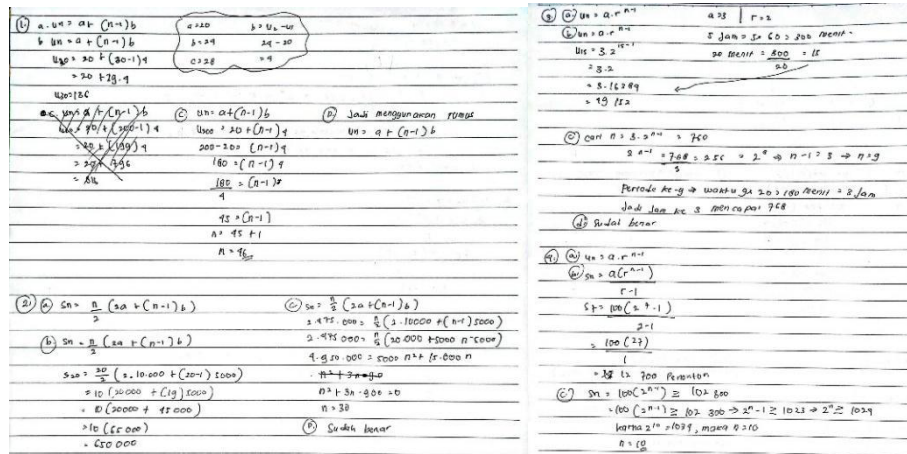 1. a. un = a + (n-1) b
a = 20
b = 24
c = 28
b = u2 - u1
24 - 20
= 4
b un = a + (n-1) b
u30 = 20 + (30-1) 4
= 20 + 29.4
u30 = 136
c un = a + (n-1) b
= 20 + (199) 4
= 816
c un = a + (n-1) b
u200 = 20 + (n-1) 4
200 - 20 = (n-1) 4
180 = (n-1) 4
180 = (n-1)
4
45 = (n-1)
n = 45 + 1
n = 46
D. Jadi menggunakan rumus
un = a + (n-1) b
2. a Sn = n/2 (2a + (n-1) b)
b Sn = n/2 (2a + (n-1) b)
S20 = 20/2 (2.10.000 + (20-1) 5000)
= 10 (20000 + (19) 5000)
= 10 (20000 + 45000)
= 10 (65000)
= 650000
c Sn = n/2 (2a + (n-1) b)
2.475.000 = n/2 (2.10000 + (n-1) 5000)
2.475000 = n/2 (20.000 + 5000 n - 5000)
4.950.000 = 5000 n² + 15.000 n
n² + 3n - 900 = 0
n = 30
D. Sudah benar
3. a un = a.r^n-1
a = 3 | r = 2
b un = a.r^n-1
5 Jam = 5 x 60 = 300 menit
U15 = 3.2^15-1
20 menit = 300/20 = 15
= 3.2
= 3.16384
= 49 152
c cari n = 3.2^n-1 = 768
2^n-1 = 768/3 = 256 = 2^8 → n-1 = 8 → n = 9
Periode ke-9 → waktu 9 x 20 = 180 menit = 3 Jam
Jadi Jam ke 3 mencapai 768
d. Sudah benar
4. a un = a.r^n-1
b. Sn = a(r^n-1)
r-1
S7 = 100(2^7-1)
2-1
= 100 (27)
1
= 12 700 Penonton
c Sn = 100(2^n-1) ≥ 102 300
= 100 (2^n-1) ≥ 102 300 → 2^n - 1 ≥ 1023 → 2^n ≥ 1024
karna 2^10 = 1024, maka n = 10
n = 10